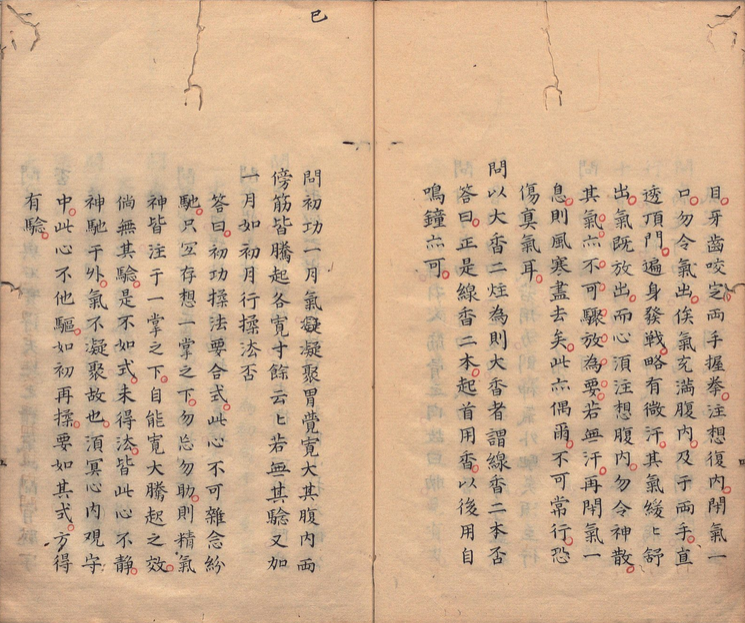 目。牙齒咬定。両手握拳。注想復内。閉氣一
口。勿令氣出。俟氣充滿腹内。及于両手。直
透頂門。遍身發戰。略有微汗。其氣緩〻舒
出。氣既放出。而心須注想腹内。勿令神散。
其氣亦不可驟放為要。若無汗。再閉氣一
息。則風寒盡去矣。此亦偶爾。不可常行。恐
傷真氣耳。
問以大香二炷為則大香者謂線香二本否
答曰。正是線香二本。起首用香。以後用自
鳴鐘亦可。
問初功一月氣凝凝聚胃覺寬大其腹内両
傍筋皆騰起各寬寸餘云〻若無其驗又加
一月如初月行揉法否
答曰。初功揉法要合式。此心不可雜念紛
馳。只宜存想一掌之下。勿忘勿助。則精氣
神皆注于一掌之下。自能寬大騰起之效。
倘無其驗。是不如式。未得法。皆此心不靜。
神馳于外。氣不凝聚故也。須冥心内观守
中。此心不他驅。如初再揉。要如其式。方得
有驗。
巳